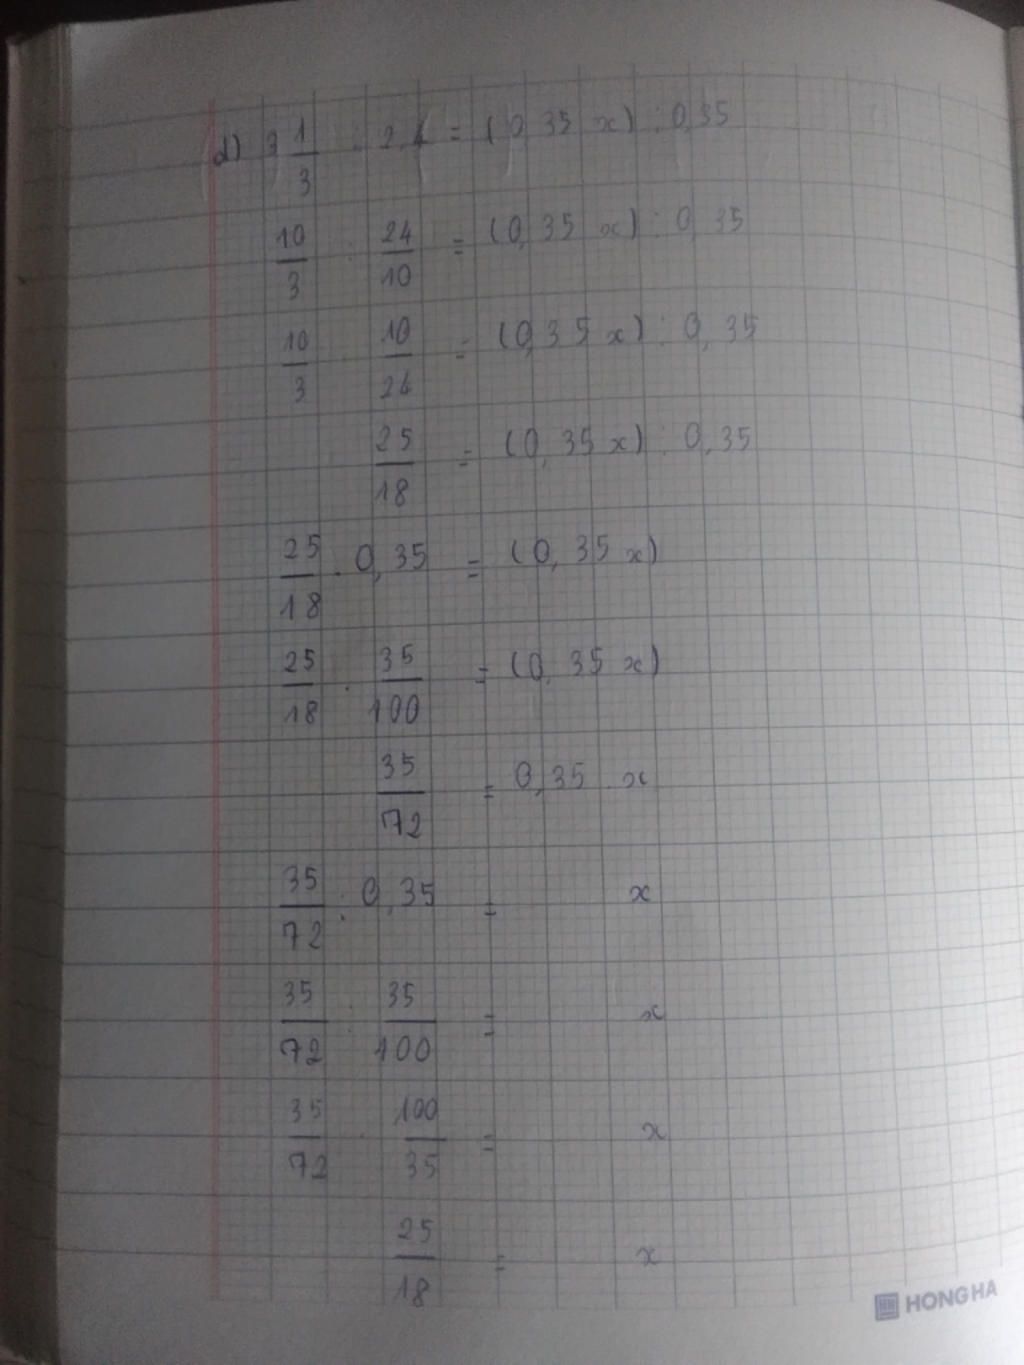 d) 3 1/3 : 2,4 = (0,35 x) : 0,35
10/3 : 24/10 = (0,35 x) : 0,35
10/3 . 10/24 = (0,35 x) : 0,35
25/18 = (0,35 x) : 0,35
25/18 . 0,35 = (0,35 x)
25/18 . 35/100 = (0,35 x)
35/72 = 0,35 . x
35/72 : 0,35 = x
35/72 : 35/100 = x
35/72 . 100/35 = x
25/18 = x
HONG HA